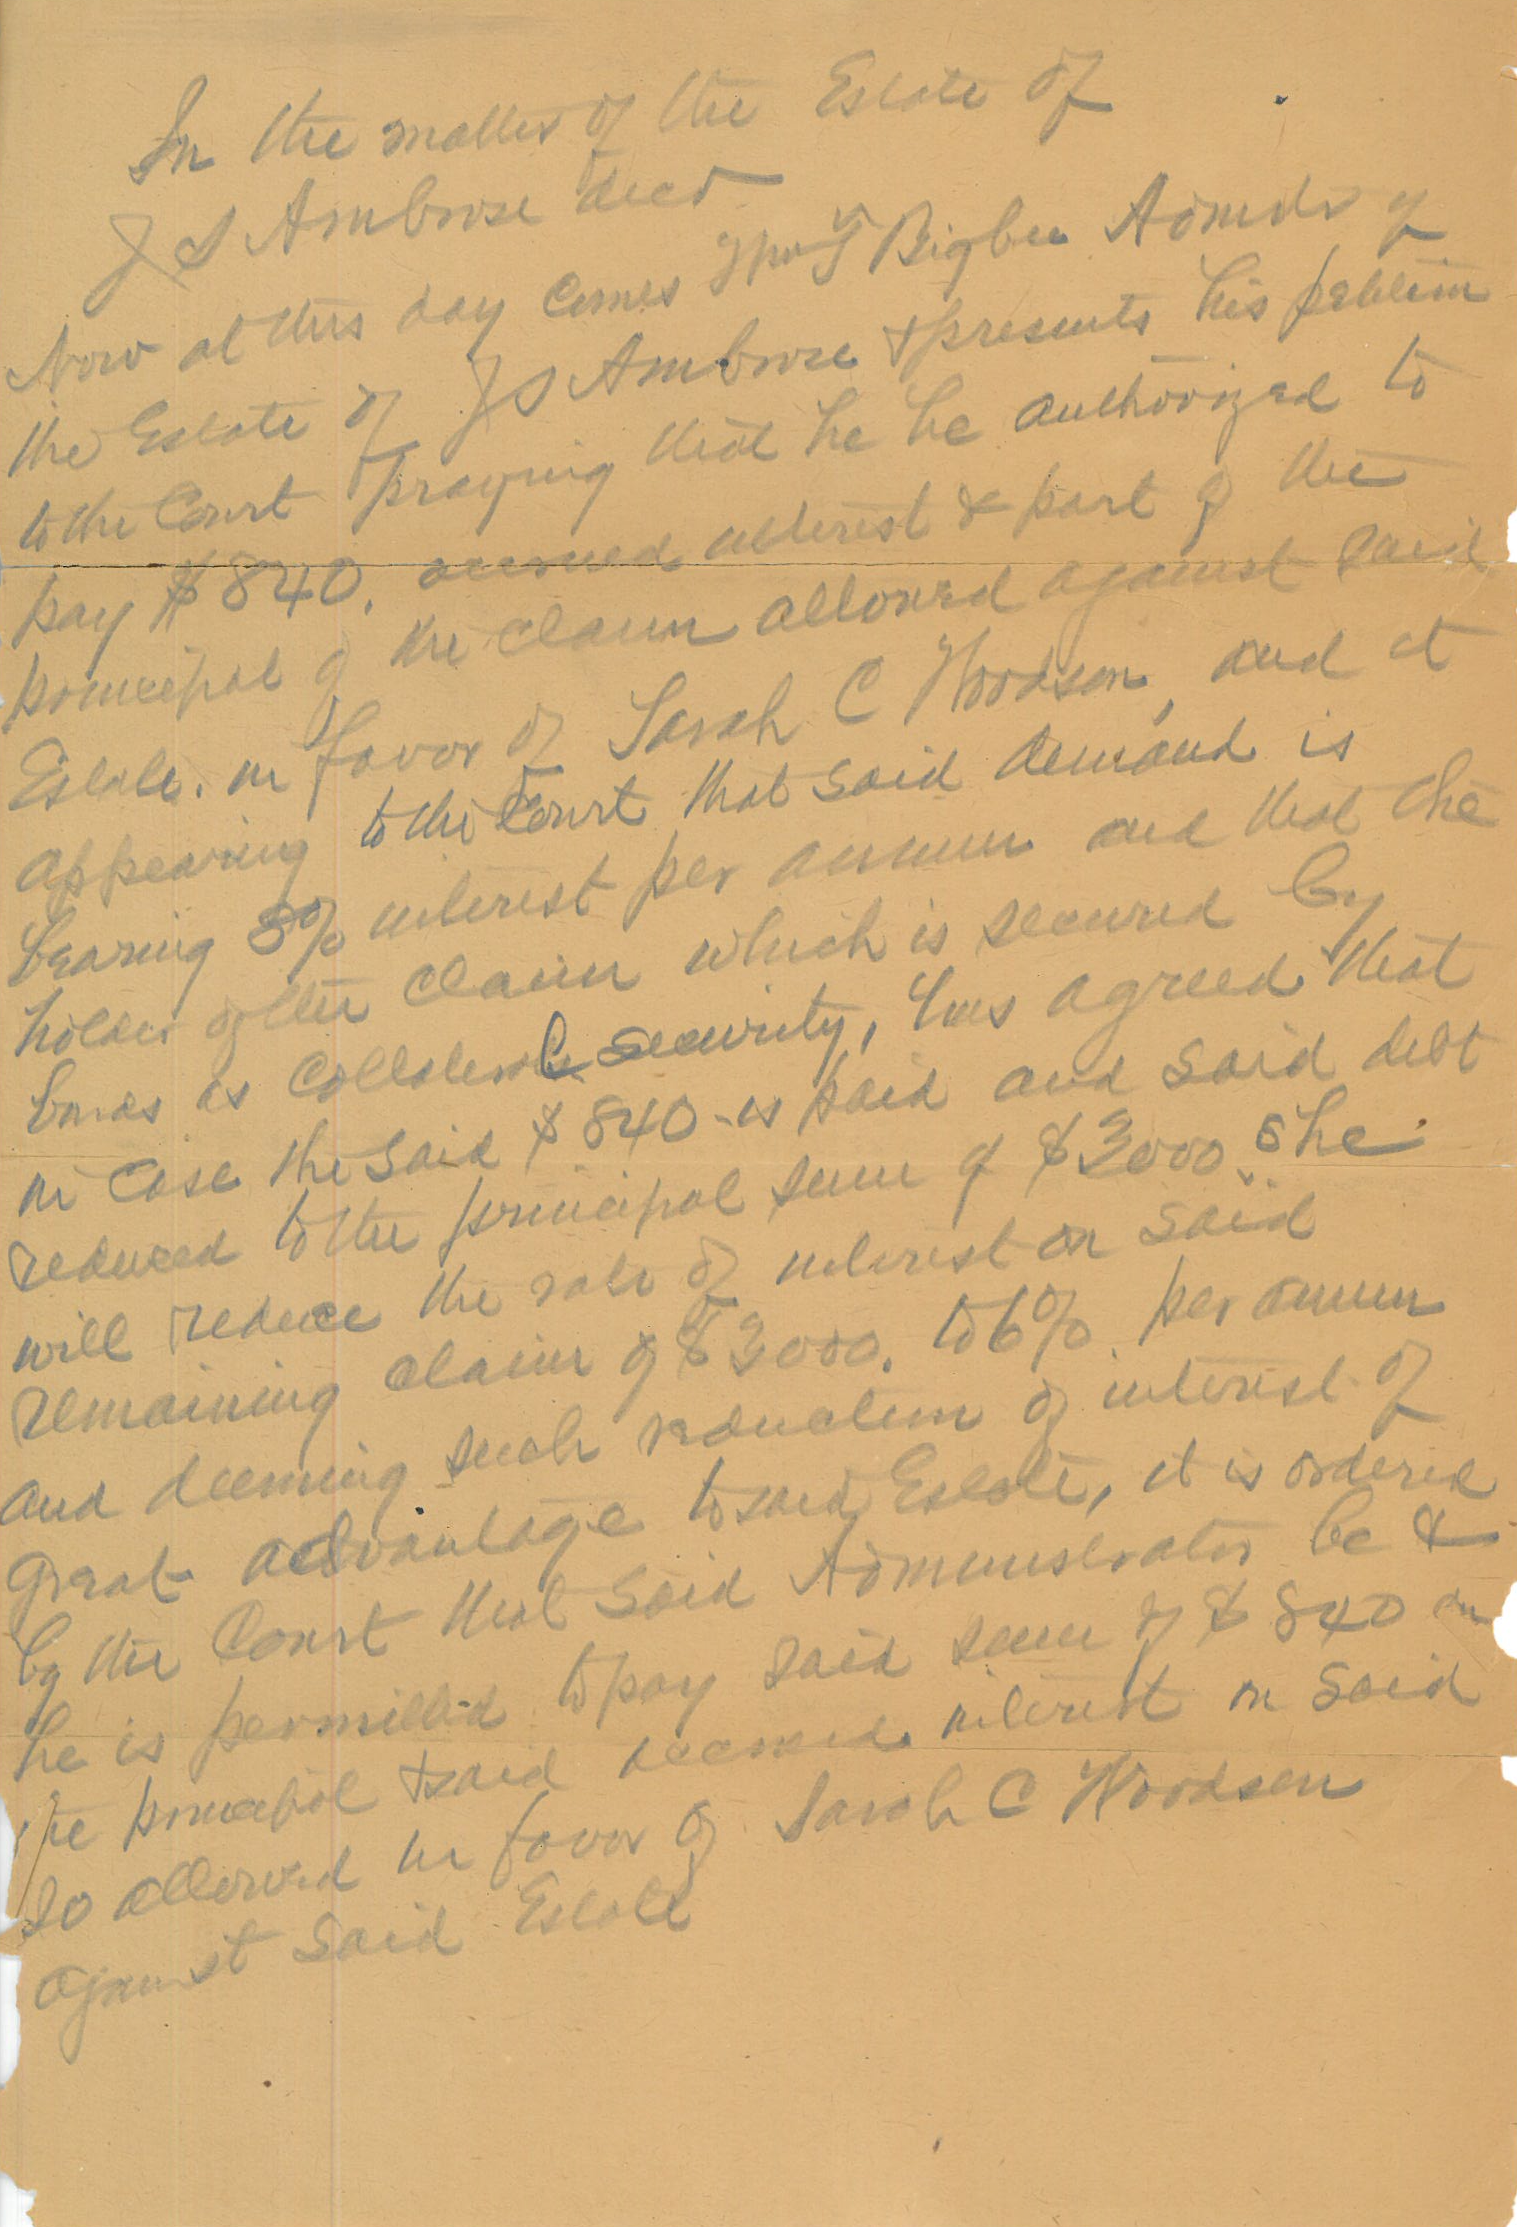 In the matter of the Estate of
J S Ambrose decd
Now at this day comes Jno T Bigbee Admr of
the Estate of J S Ambrose & presents his petition
to the Court praying that he be authorized to
pay $840. accrued interest & part of the
principal of the claim allowed against said
Estate. in favor of Sarah C Woodson, and it
appearing to the Court that said demand is
bearing 8% interest per annum and that the
holder of the claim which is secured by
bonds as collateral security, has agreed that
in case the said $840 is paid and said debt
reduced to the principal sum of $3000. she
will reduce the rate of interest on said
remaining claim of $3000. to 6% per annum
and deeming such reduction of interest of
great advantage to said Estate, it is ordered
by the Court that said Administrator be &
he is permitted to pay said sum of $840 on
the principal & said accrued interest on said
so allowed in favor of Sarah C Woodson
against said Estate